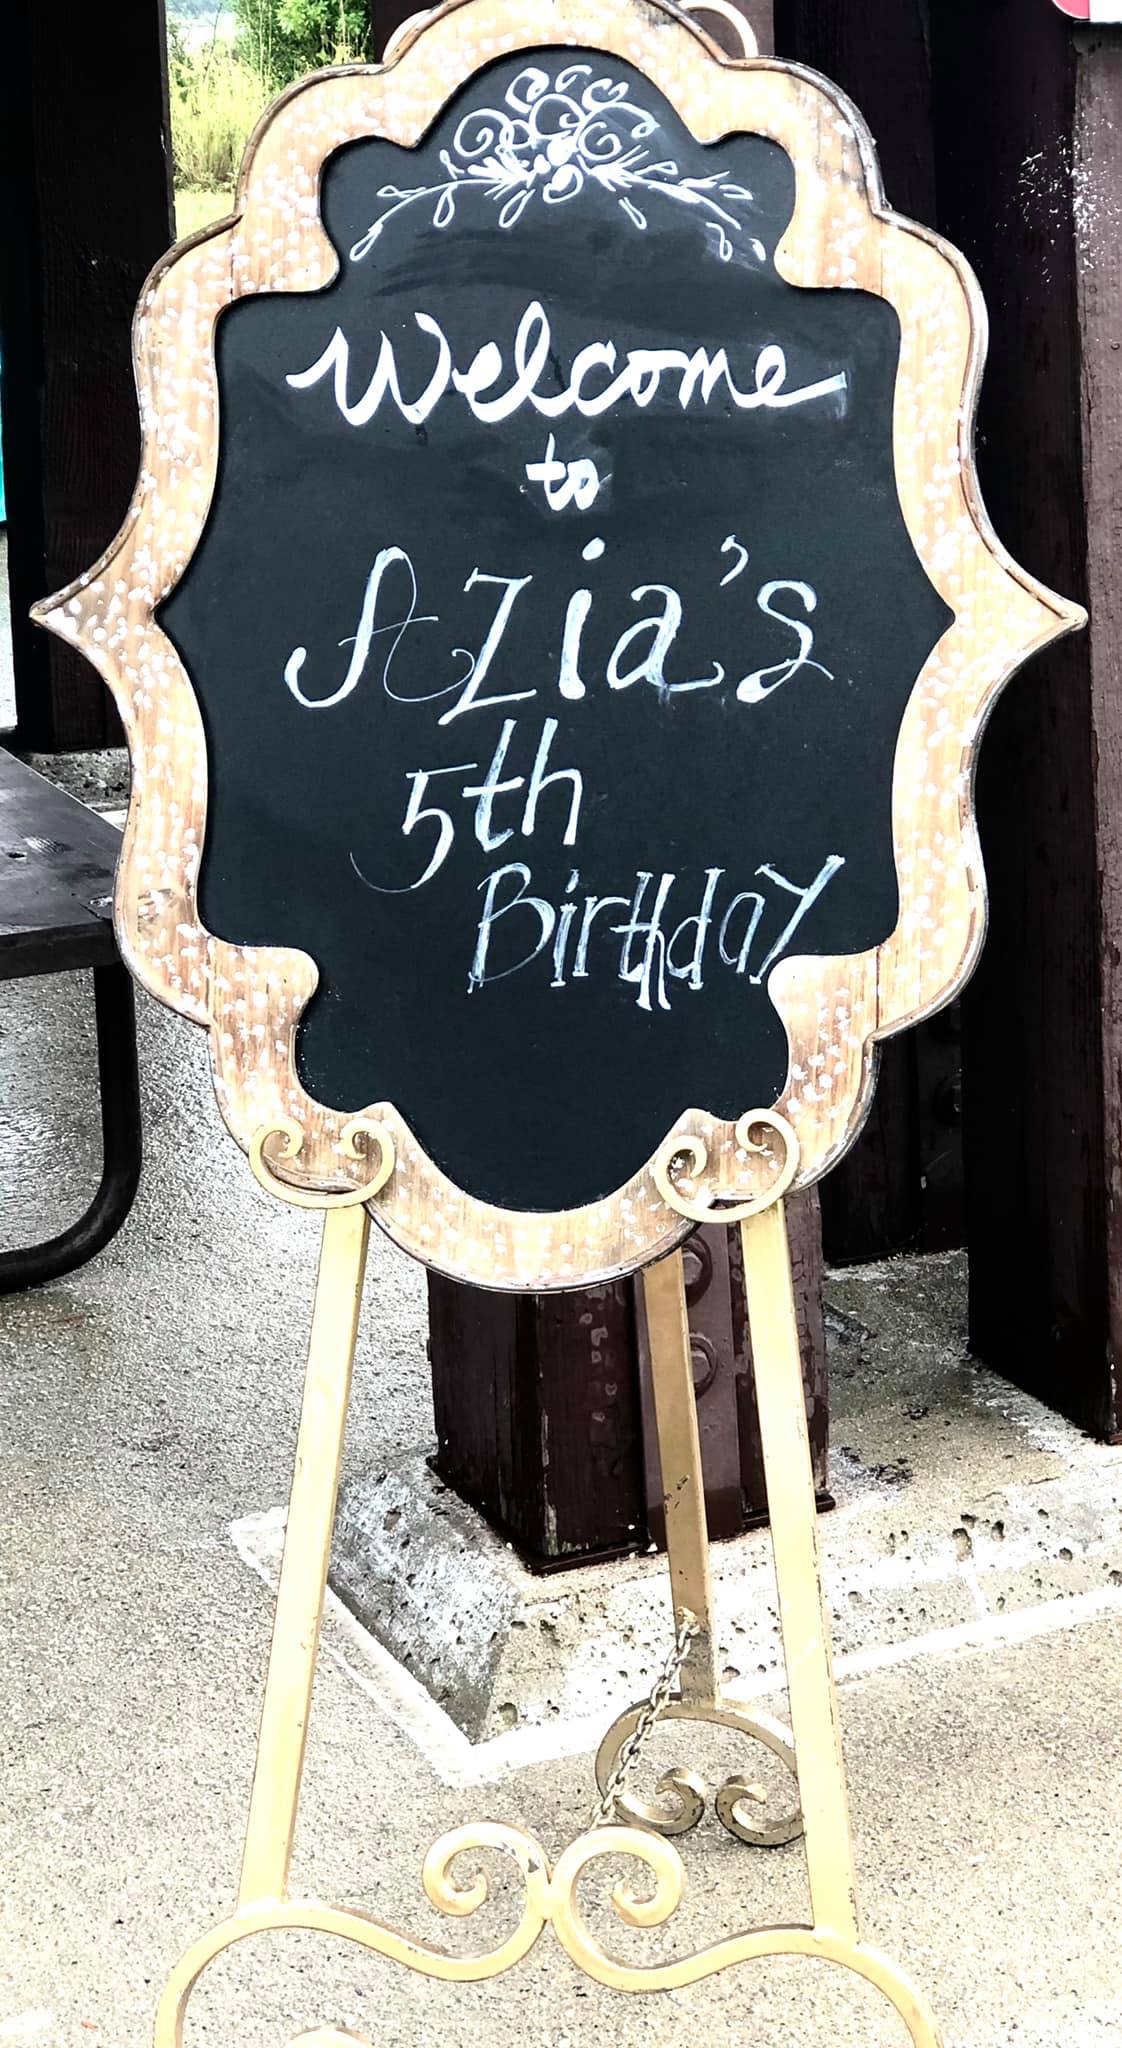 Welcome
to
Azia's
5th
Birthday